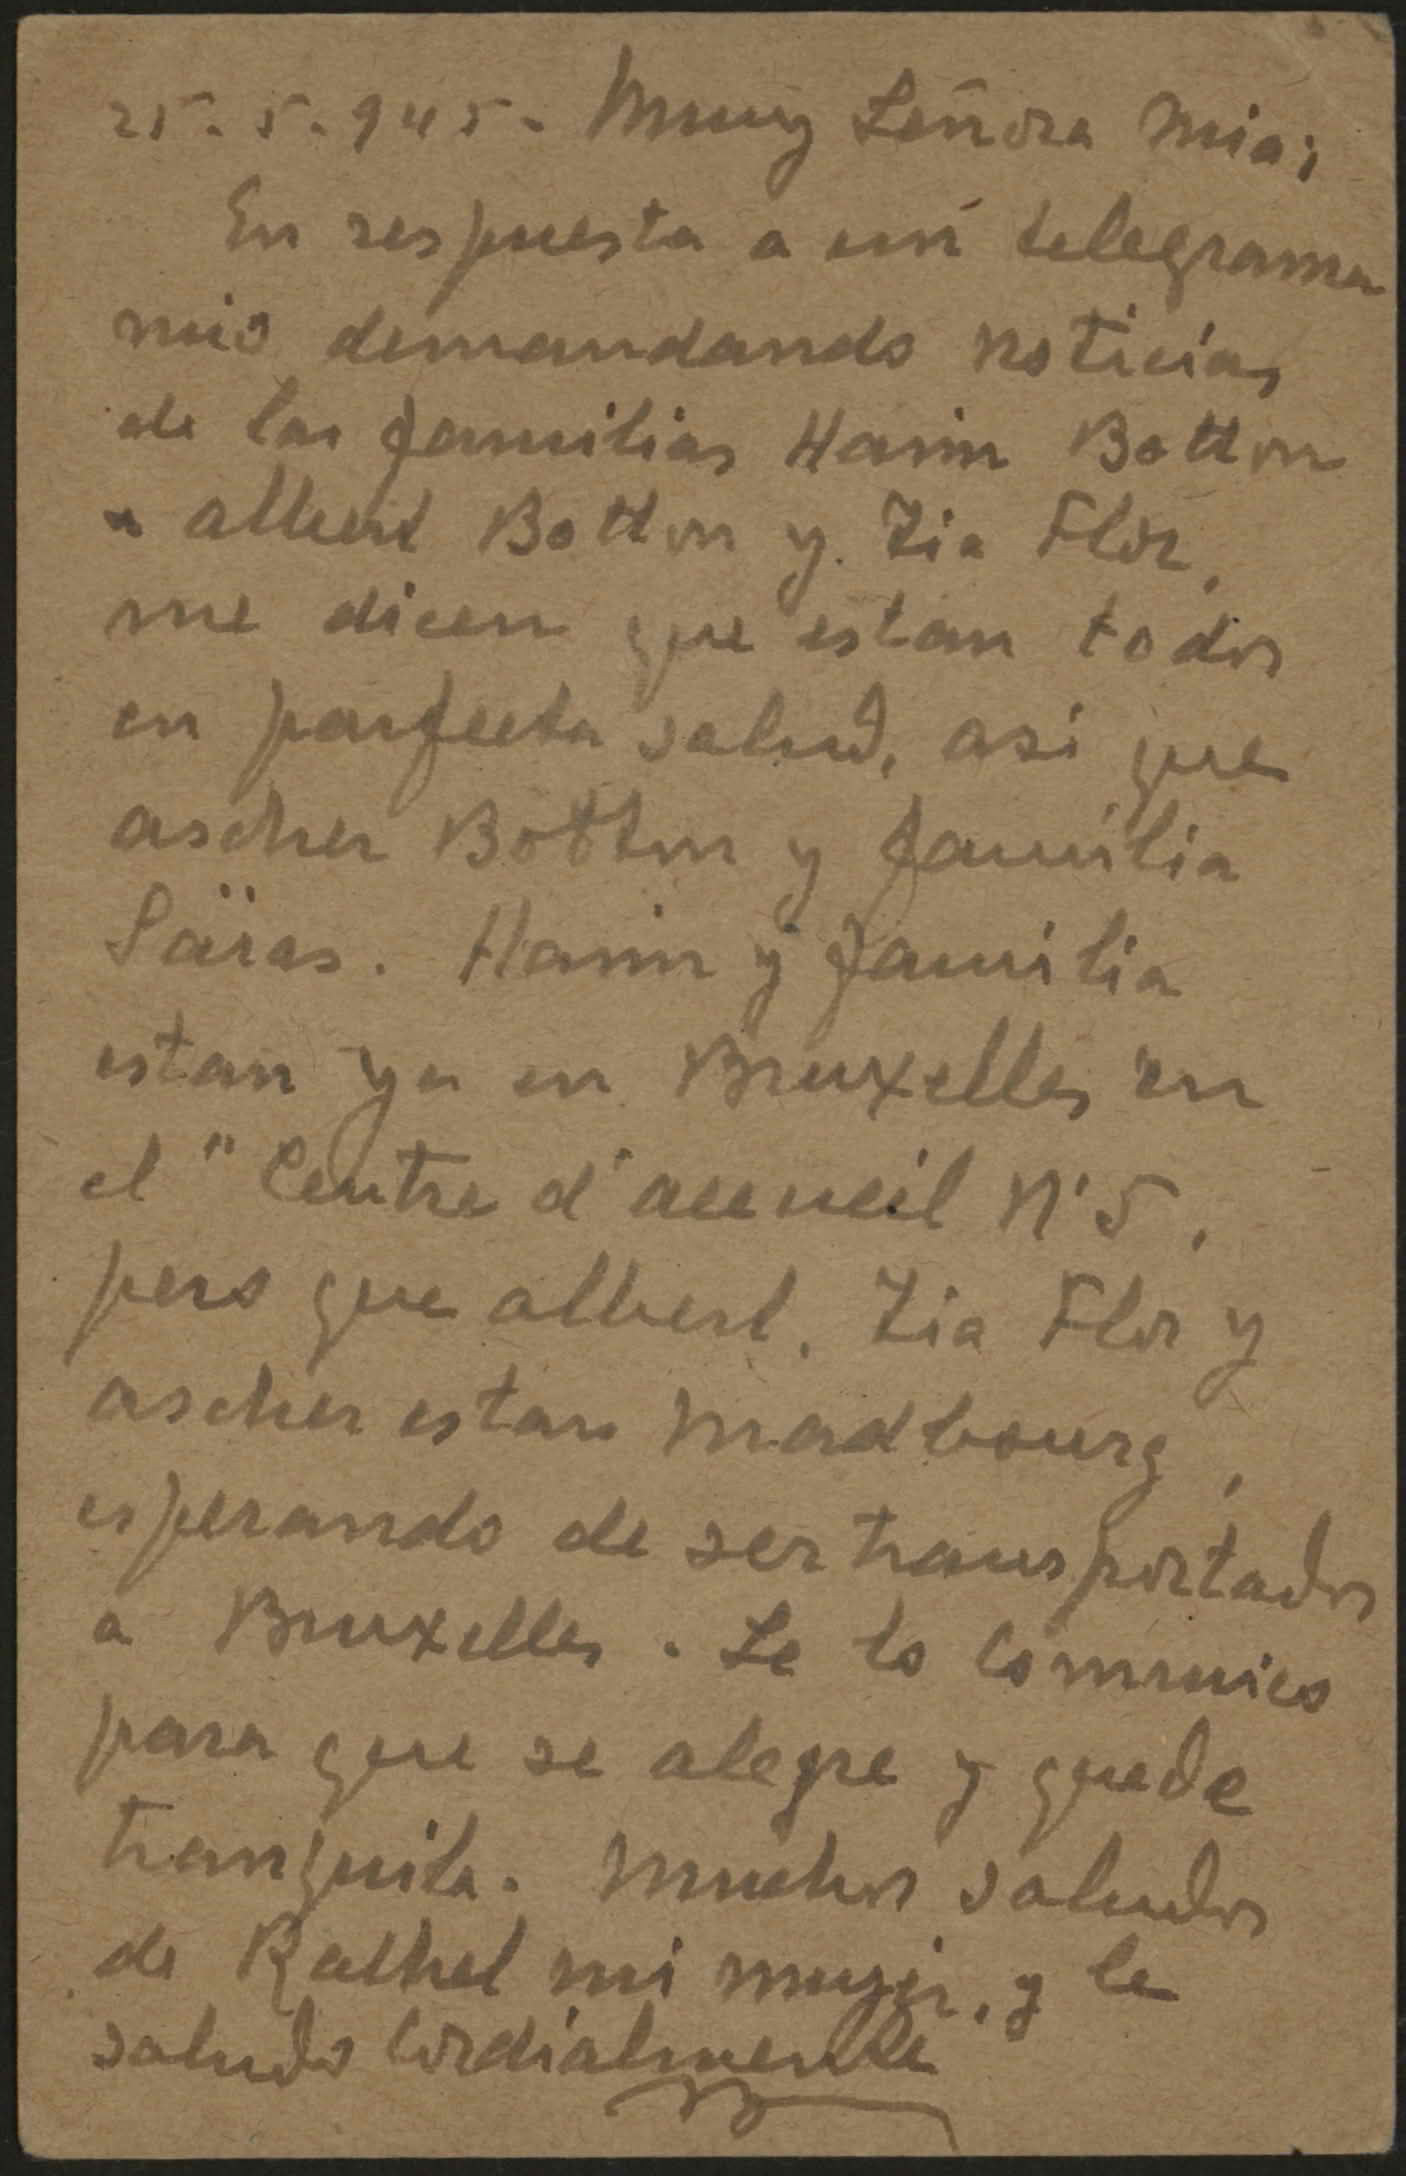 25.5.945. Muy Señora mia;
En respuesta a un telegrama
mio demandando noticias
de las familias Haim Botton
albert Botton y. Tia Flor,
me dicen que estan todos
en parfecta salud, asi que
ascher Botton y familia
Säias. Haim y familia
estan ya en Bruxelles en
el "Centre d'accueil N°5,
pero que albert, Tia Flor y
ascher estan Madbourg,
esperando de ser transportados
a Bruxelles. Le lo comunico
para que se alegre y quede
tranquila. Muchos saludos
de Rachel mi mujer, y le
saludo Cordialmente